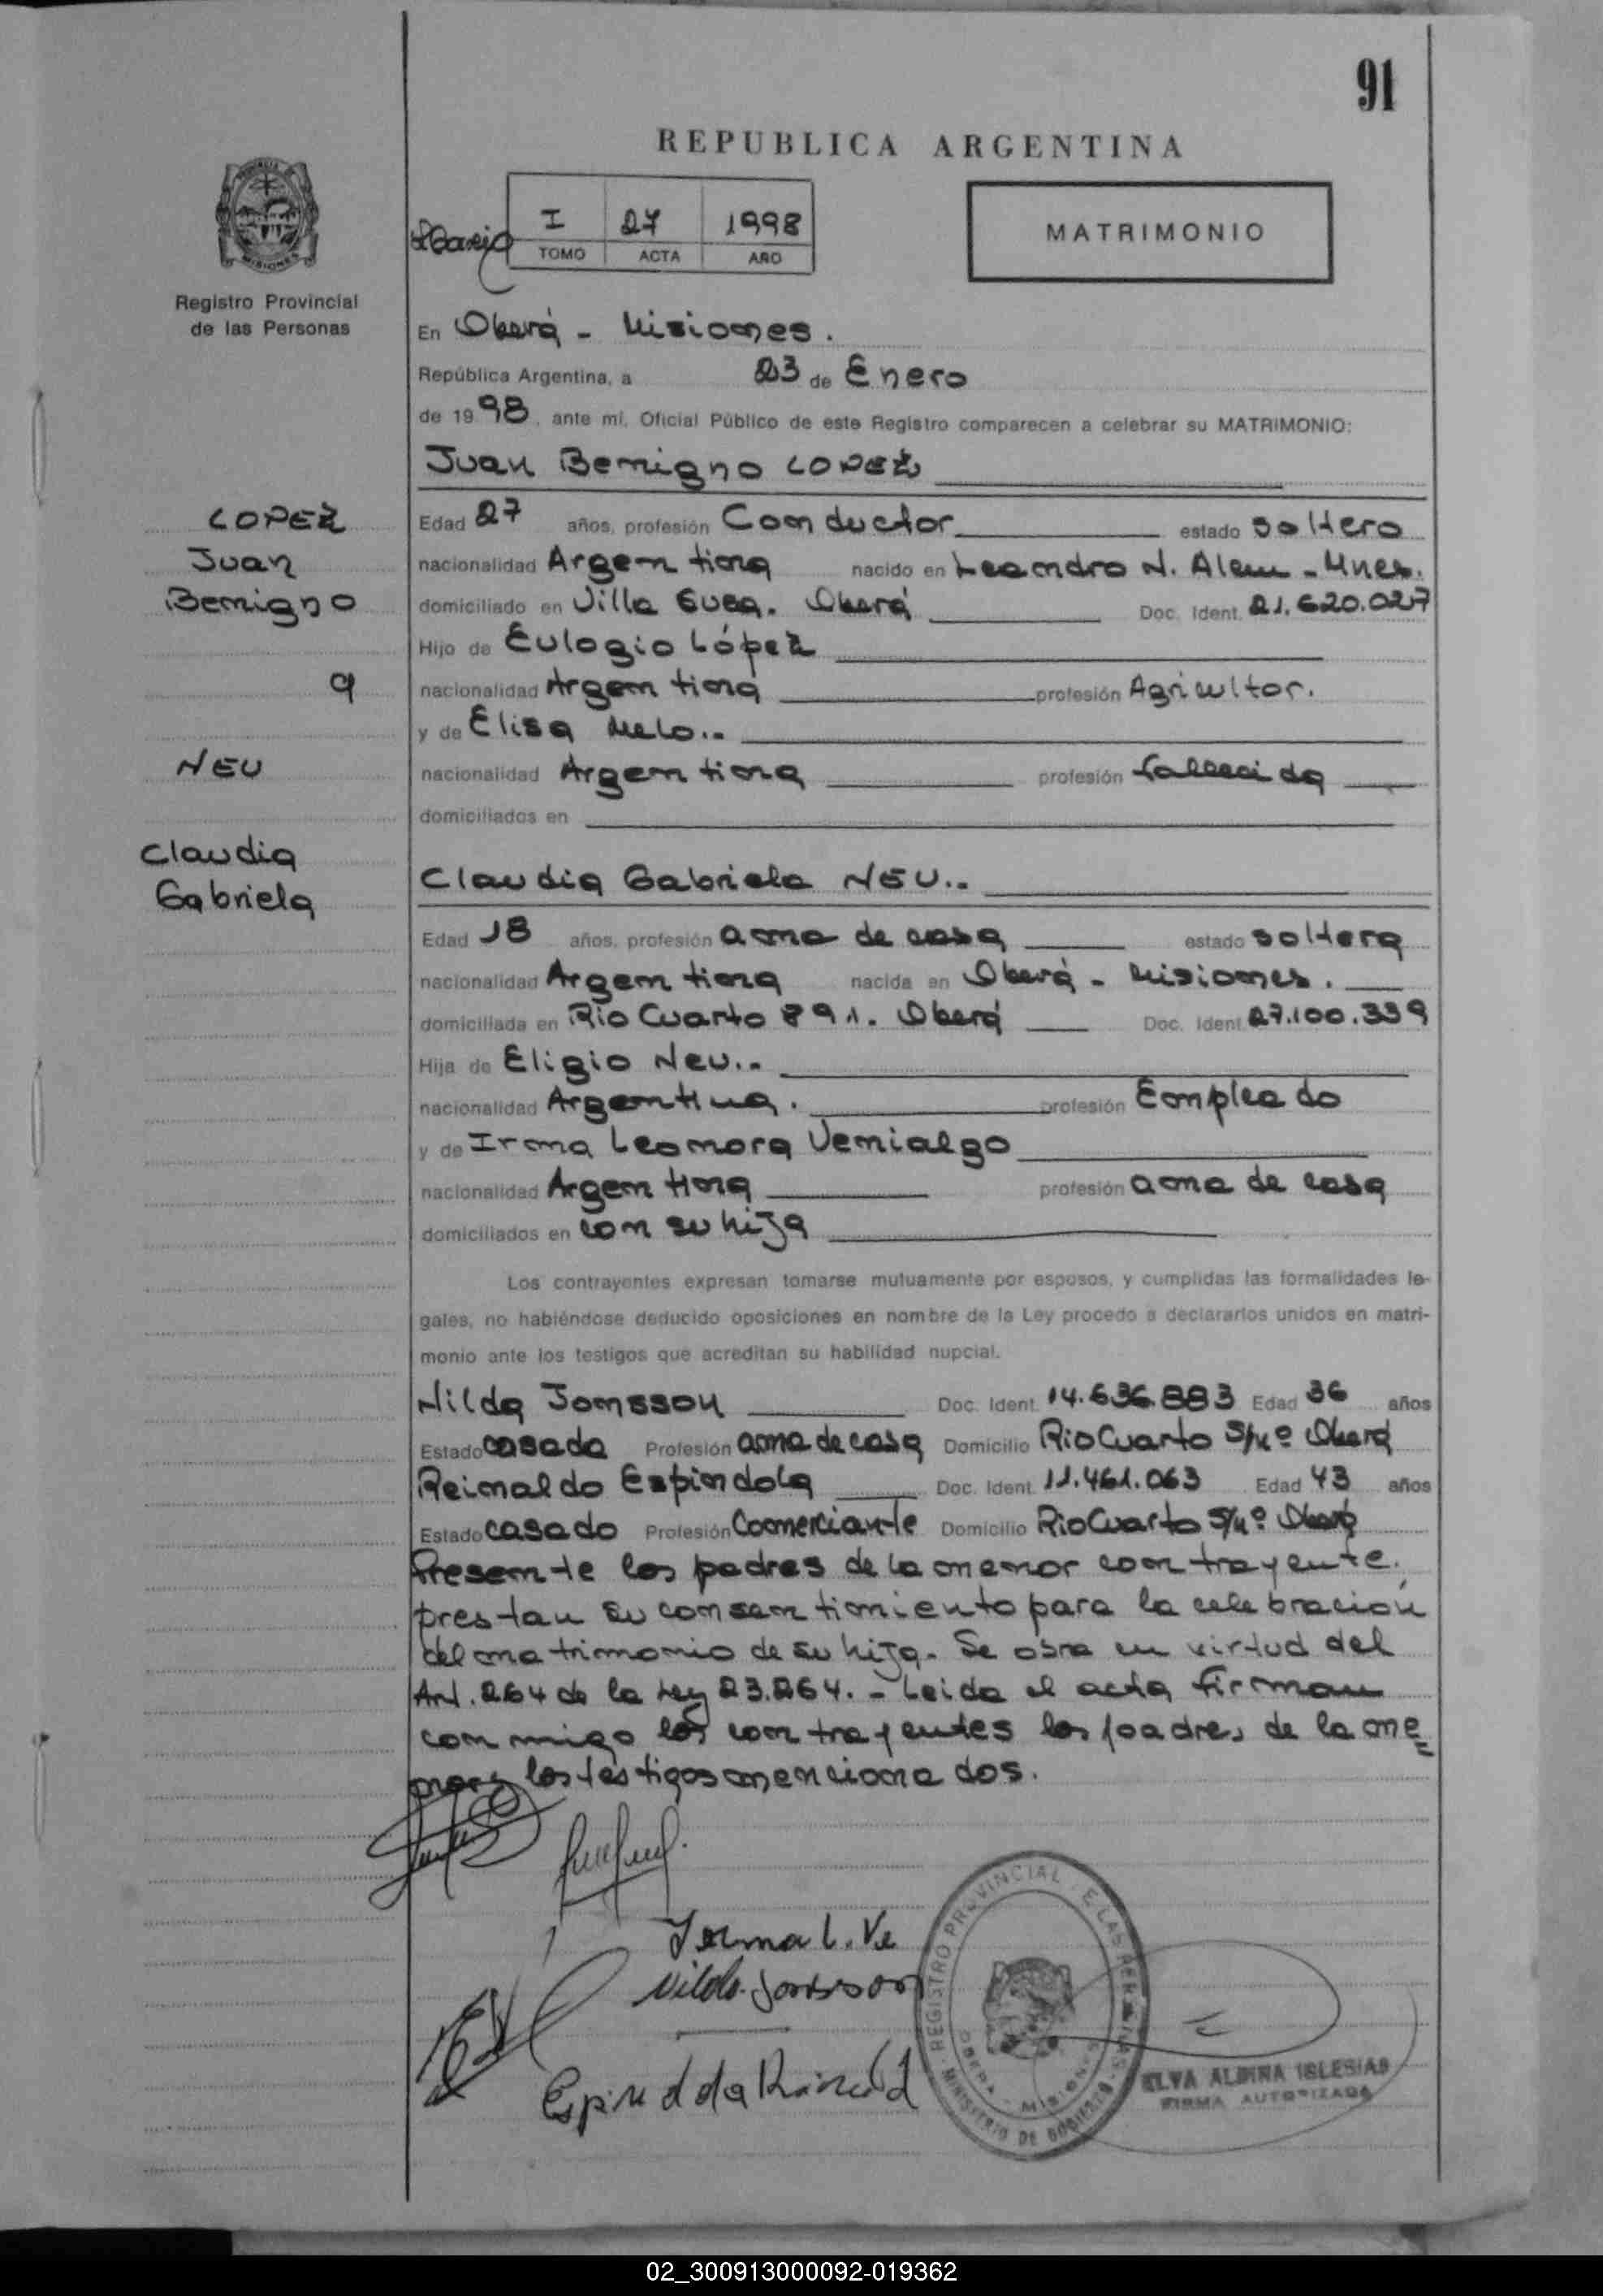 91
REPUBLICA ARGENTINA
I 27 1998
TOMO ACTA AÑO
MATRIMONIO
Registro Provincial
de las Personas
En Oberá - Misiones.
República Argentina, a 23 de Enero
de 1998, ante mí, Oficial Público de este Registro comparecen a celebrar su MATRIMONIO:
Juan Benigno LOPEZ
LOPEZ
Juan
Benigno
Edad 27 años, profesión Conductor estado soltero
nacionalidad Argentina nacido en Leandro N. Alem - Mnes.
domiciliado en Villa Doc. Ident. 21.620.027
Oberá
Hijo de Eulogio López
nacionalidad Argentina profesión Agricultor.
y de Elisa Melo..
nacionalidad Argentina profesión fallecida
domiciliados en
NEU
Claudia
Gabriela
Claudia Gabriela NEU..
Edad 18 años, profesión ama de casa estado soltera
nacionalidad Argentina nacida en Oberá - Misiones.
domiciliada en Rio Cuarto 891. Oberá Doc. Ident. 27.100.339
Hija de Eligio Neu..
nacionalidad Argentina. profesión Empleado
y de Irma Leonora Venialgo
nacionalidad Argentina profesión ama de casa
domiciliados en con su hija
Los contrayentes expresan tomarse mutuamente por esposos, y cumplidas las formalidades le-
gales, no habiéndose deducido oposiciones en nombre de la Ley procedo a declararlos unidos en matri-
monio ante los testigos que acreditan su habilidad nupcial.
Nilda Jonsson Doc. Ident. 14.636.883 Edad 36 años
Estado casada Profesión ama de casa Domicilio Rio Cuarto S/nº Oberá
Reinaldo Espindola Doc. Ident. 11.461.063 Edad 43 años
Estado casado Profesión Comerciante Domicilio Rio Cuarto S/nº Oberá
Presente los padres de la menor contrayente,
prestan su consentimiento para la celebración
del matrimonio de su hija. Se obra en virtud del
Art. 264 de la Ley 23.264. - Leida el acta firman
conmigo los contrayentes los padres de la me
nor y los testigos mencionados.
Irma L. Ve
Nilda Jonsson
REGISTRO PROVINCIAL DE LAS PERSONAS
OBERA - MISIONES
MINISTERIO DE GOBIERNO
ELVA ALBINA IGLESIAS
FIRMA AUTORIZADA
02_300913000092-019362